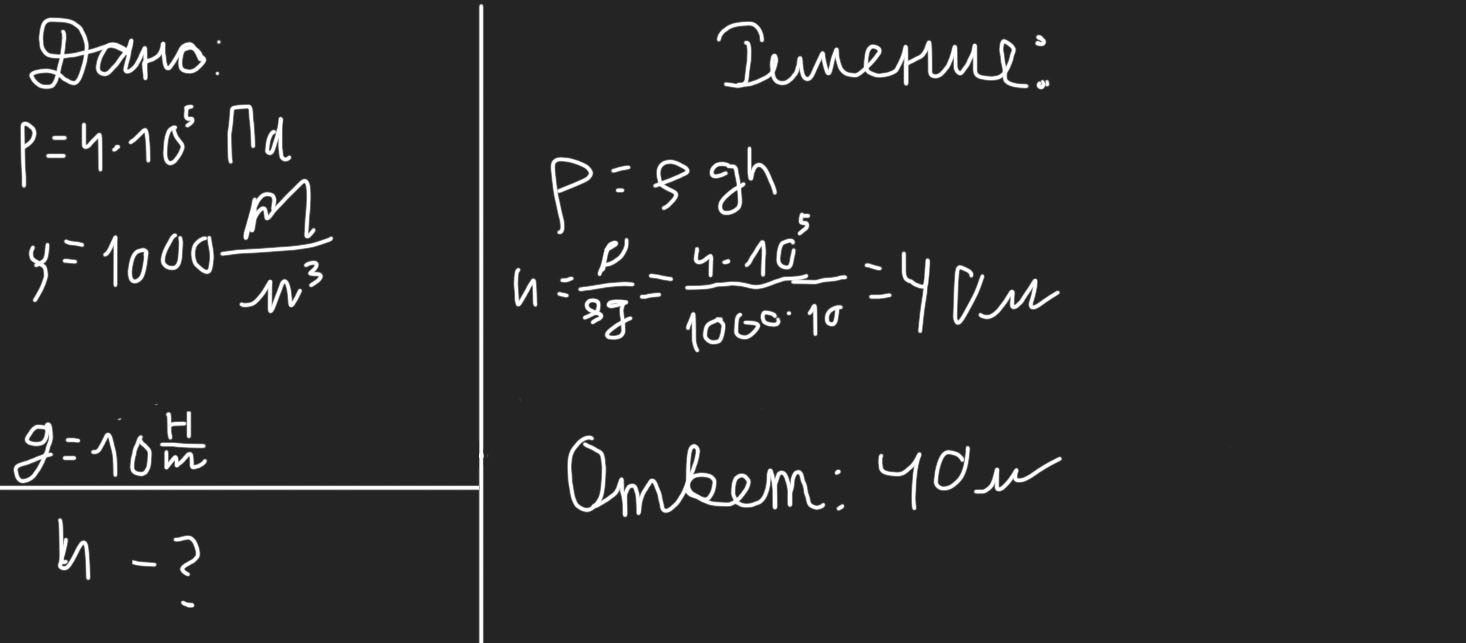 Дано:
p=4·10⁵ Па
y=1000 м/м³
g=10 Н/m
h - ?
Решение:
P=ρgh
h=p/ρg=4·10⁵/1000·10=40м
Ответ: 40м